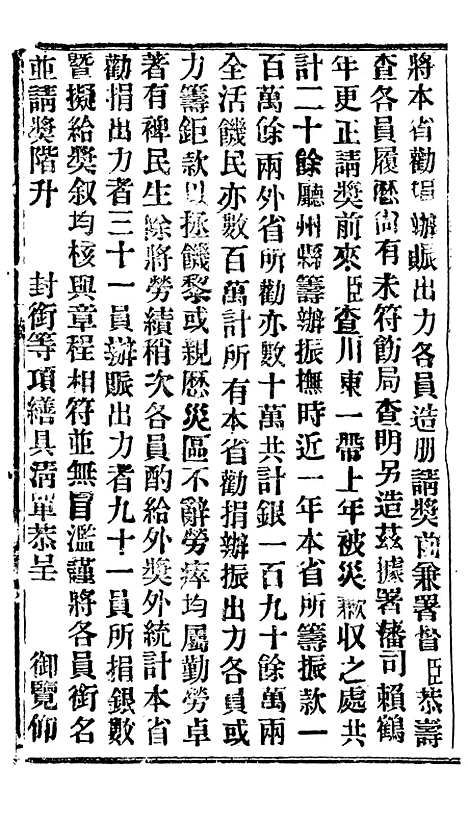 將本省勸捐辦賑出力各員造册請獎前兼署督臣恭壽
查各員履歷尚有未符飭局查明另造茲據署藩司賴鶴
年更正請獎前來臣查川東一帶上年被災歉收之處共
計二十餘廳州縣籌辦振撫時近一年本省所籌振款一
百萬餘兩外省所勸亦數十萬共計銀一百九十餘萬兩
全活饑民亦數百萬計所有本省勸捐辦振出力各員或
力籌鉅款以拯饑黎或親歷災區不辭勞瘁均屬勤勞卓
著有裨民生除將勞績稍次各員酌給外獎外統計本省
勸捐出力者三十一員辦賑出力者九十一員所捐銀數
暨擬給獎叙均核與章程相符並無冒濫謹將各員銜名
並請獎階升 封銜等項繕具清單恭呈 御覽仰